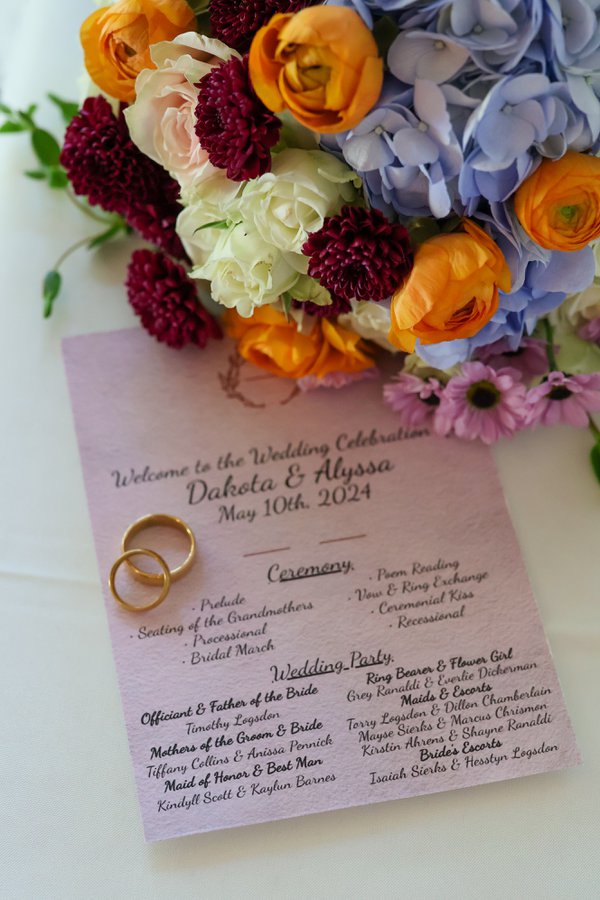 Welcome to the Wedding Celebration
Dakota & Alyssa
May 10th, 2024
Ceremony
· Prelude
· Seating of the Grandmothers
· Processional
· Bridal March
· Poem Reading
· Vow & Ring Exchange
· Ceremonial Kiss
· Recessional
Wedding Party
Officiant & Father of the Bride
Timothy Logsdon
Mothers of the Groom & Bride
Tiffany Collins & Anissa Pennick
Maid of Honor & Best Man
Kindyll Scott & Kaylun Barnes
Ring Bearer & Flower Girl
Grey Ranaldi & Everlie Dickerman
Maids & Escorts
Torry Logsdon & Dillon Chamberlain
Mayse Sierks & Marcus Chrismon
Kirstin Ahrens & Shayne Ranaldi
Bride's Escorts
Isaiah Sierks & Hesstyn Logsdon